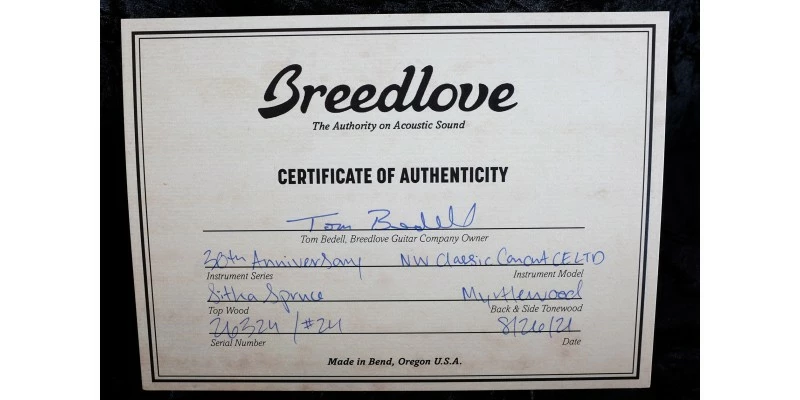 Breedlove
The Authority on Acoustic Sound
CERTIFICATE OF AUTHENTICITY
Tom Bedell
Tom Bedell, Breedlove Guitar Company Owner
30th Anniversary NW Classic Concert CE LTD
Instrument Series Instrument Model
Sitka Spruce Myrtlewood
Top Wood Back & Side Tonewood
26324 / #24 8/26/21
Serial Number Date
Made in Bend, Oregon U.S.A.